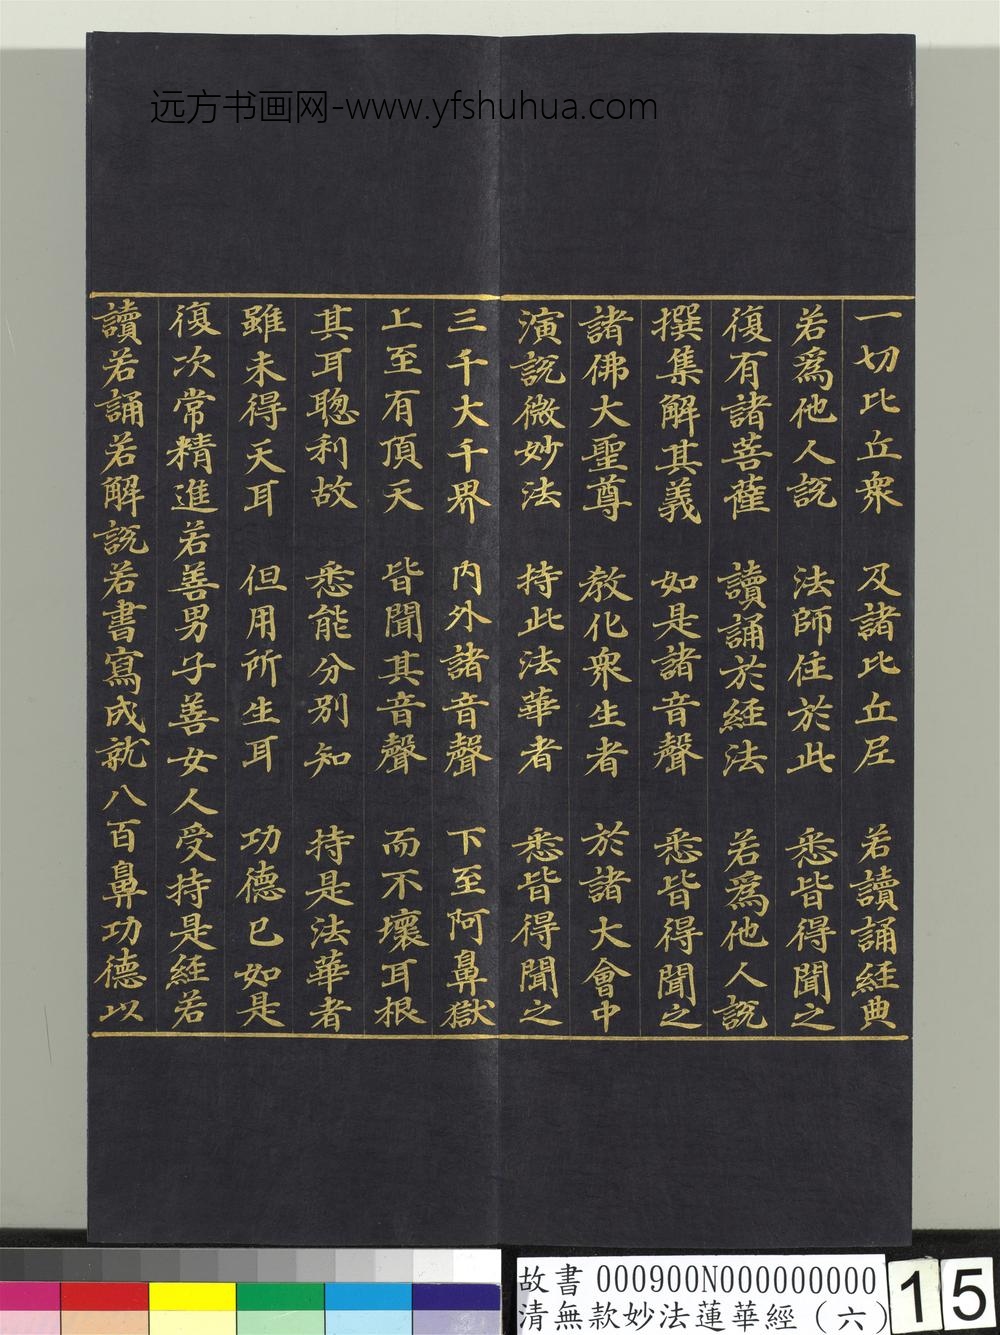 远方书画网-www.yfshuhua.com
一切比丘衆 及諸比丘尼 若讀誦經典
若爲他人說 法師住於此 悉皆得聞之
復有諸菩薩 讀誦於經法 若爲他人說
撰集解其義 如是諸音聲 悉皆得聞之
諸佛大聖尊 教化衆生者 於諸大會中
演說微妙法 持此法華者 悉皆得聞之
三千大千界 内外諸音聲 下至阿鼻獄
上至有頂天 皆聞其音聲 而不壞耳根
其耳聰利故 悉能分别知 持是法華者
雖未得天耳 但用所生耳 功德已如是
復次常精進若善男子善女人受持是經若
讀若誦若解說若書寫成就八百鼻功德以
故書 000900N000000000
清無款妙法蓮華經（六）
15